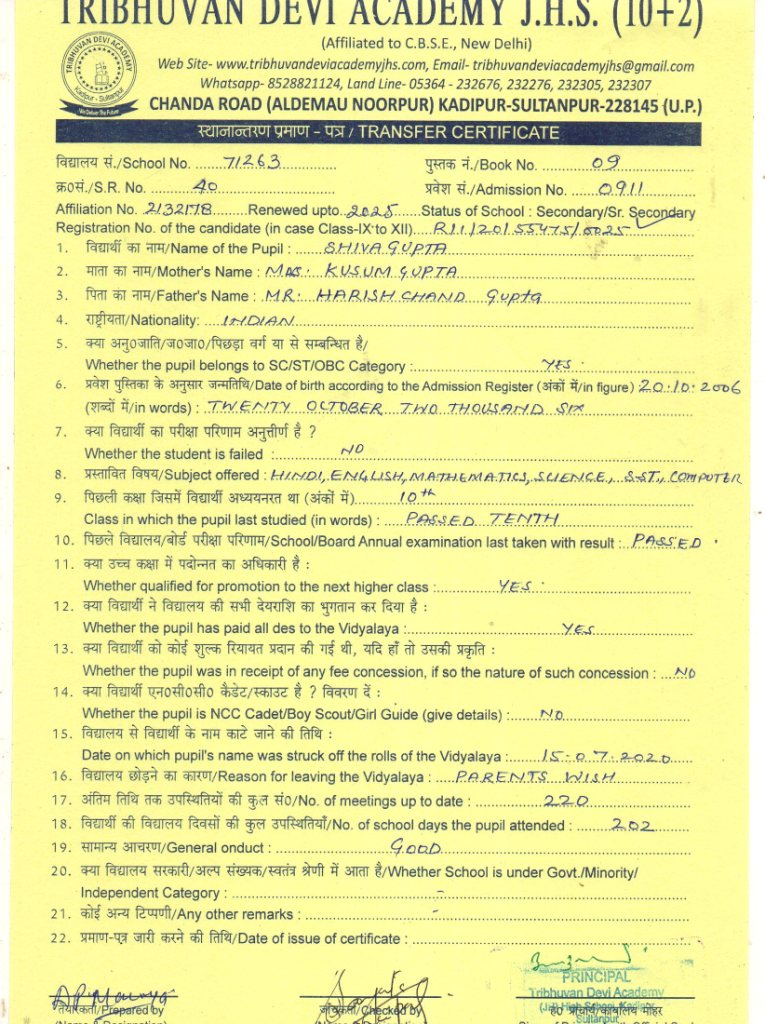 TRIBHUVAN DEVI ACADEMY J.H.S. (10+2)
(Affiliated to C.B.S.E., New Delhi)
TRIBHUVAN DEVI ACADEMY
Kadipur - Sultanpur
We Deliver The Future
Web Site- www.tribhuvandeviacademyjhs.com, Email- tribhuvandeviacademyjhs@gmail.com
Whatsapp- 8528821124, Land Line- 05364 - 232676, 232276, 232305, 232307
CHANDA ROAD (ALDEMAU NOORPUR) KADIPUR-SULTANPUR-228145 (U.P.)
स्थानान्तरण प्रमाण - पत्र / TRANSFER CERTIFICATE
विद्यालय सं./School No. 71263 पुस्तक नं./Book No. 09
क्र०सं./S.R. No. 40 प्रवेश सं./Admission No. 0911
Affiliation No. 2132178 Renewed upto 2025 Status of School : Secondary/Sr. Secondary
Registration No. of the candidate (in case Class-IX to XII) R11/20/55475/0025
1. विद्यार्थी का नाम/Name of the Pupil : SHIVA GUPTA
2. माता का नाम/Mother's Name : MRS. KUSUM GUPTA
3. पिता का नाम/Father's Name : MR. HARISH CHAND GUPTA
4. राष्ट्रीयता/Nationality: INDIAN
5. क्या अनु०जाति/ज०जा०/पिछड़ा वर्ग या से सम्बन्धित है/
Whether the pupil belongs to SC/ST/OBC Category : YES
6. प्रवेश पुस्तिका के अनुसार जन्मतिथि/Date of birth according to the Admission Register (अंकों में/in figure) 20.10.2006
(शब्दों में/in words) : TWENTY OCTOBER TWO THOUSAND SIX
7. क्या विद्यार्थी का परीक्षा परिणाम अनुत्तीर्ण है ?
Whether the student is failed : NO
8. प्रस्तावित विषय/Subject offered : HINDI, ENGLISH, MATHEMATICS, SCIENCE, S.ST., COMPUTER
9. पिछली कक्षा जिसमें विद्यार्थी अध्ययनरत था (अंकों में) 10th
Class in which the pupil last studied (in words) : PASSED TENTH
10. पिछले विद्यालय/बोर्ड परीक्षा परिणाम/School/Board Annual examination last taken with result : PASSED
11. क्या उच्च कक्षा में पदोन्नत का अधिकारी है :
Whether qualified for promotion to the next higher class : YES
12. क्या विद्यार्थी ने विद्यालय की सभी देयराशि का भुगतान कर दिया है :
Whether the pupil has paid all des to the Vidyalaya : YES
13. क्या विद्यार्थी को कोई शुल्क रियायत प्रदान की गई थी, यदि हाँ तो उसकी प्रकृति :
Whether the pupil was in receipt of any fee concession, if so the nature of such concession : NO
14. क्या विद्यार्थी एन०सी०सी० कैडेट/स्काउट है ? विवरण दें :
Whether the pupil is NCC Cadet/Boy Scout/Girl Guide (give details) : NO
15. विद्यालय से विद्यार्थी के नाम काटे जाने की तिथि :
Date on which pupil's name was struck off the rolls of the Vidyalaya : 15-07-2020
16. विद्यालय छोड़ने का कारण/Reason for leaving the Vidyalaya : PARENTS WISH
17. अंतिम तिथि तक उपस्थितियों की कुल सं०/No. of meetings up to date : 220
18. विद्यार्थी की विद्यालय दिवसों की कुल उपस्थितियाँ/No. of school days the pupil attended : 202
19. सामान्य आचरण/General onduct : GOOD
20. क्या विद्यालय सरकारी/अल्प संख्यक/स्वतंत्र श्रेणी में आता है/Whether School is under Govt./Minority/
Independent Category : -
21. कोई अन्य टिप्पणी/Any other remarks : -
22. प्रमाण-पत्र जारी करने की तिथि/Date of issue of certificate :
PRINCIPAL
Tribhuvan Devi Academy
High School, Kadipur
Sultanpur
तैयारकर्ता/Prepared by जाँचकर्ता/Checked by ह० प्राचार्य/कार्यालय मोहर